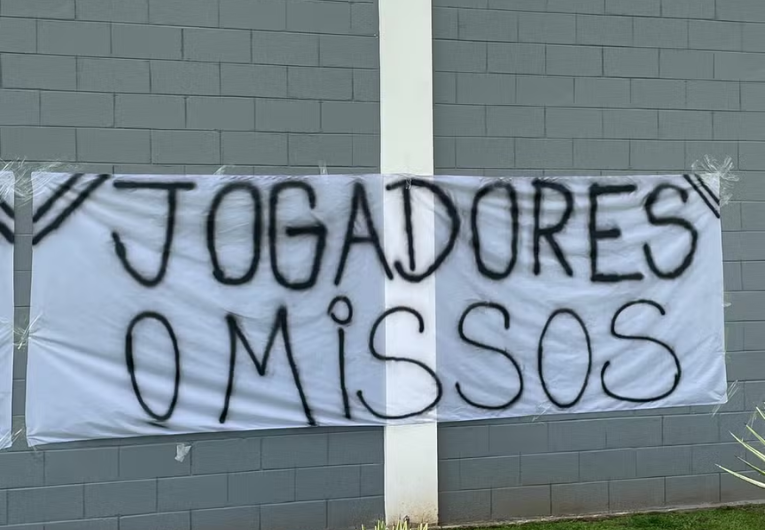 JOGADORES
OMiSSOS